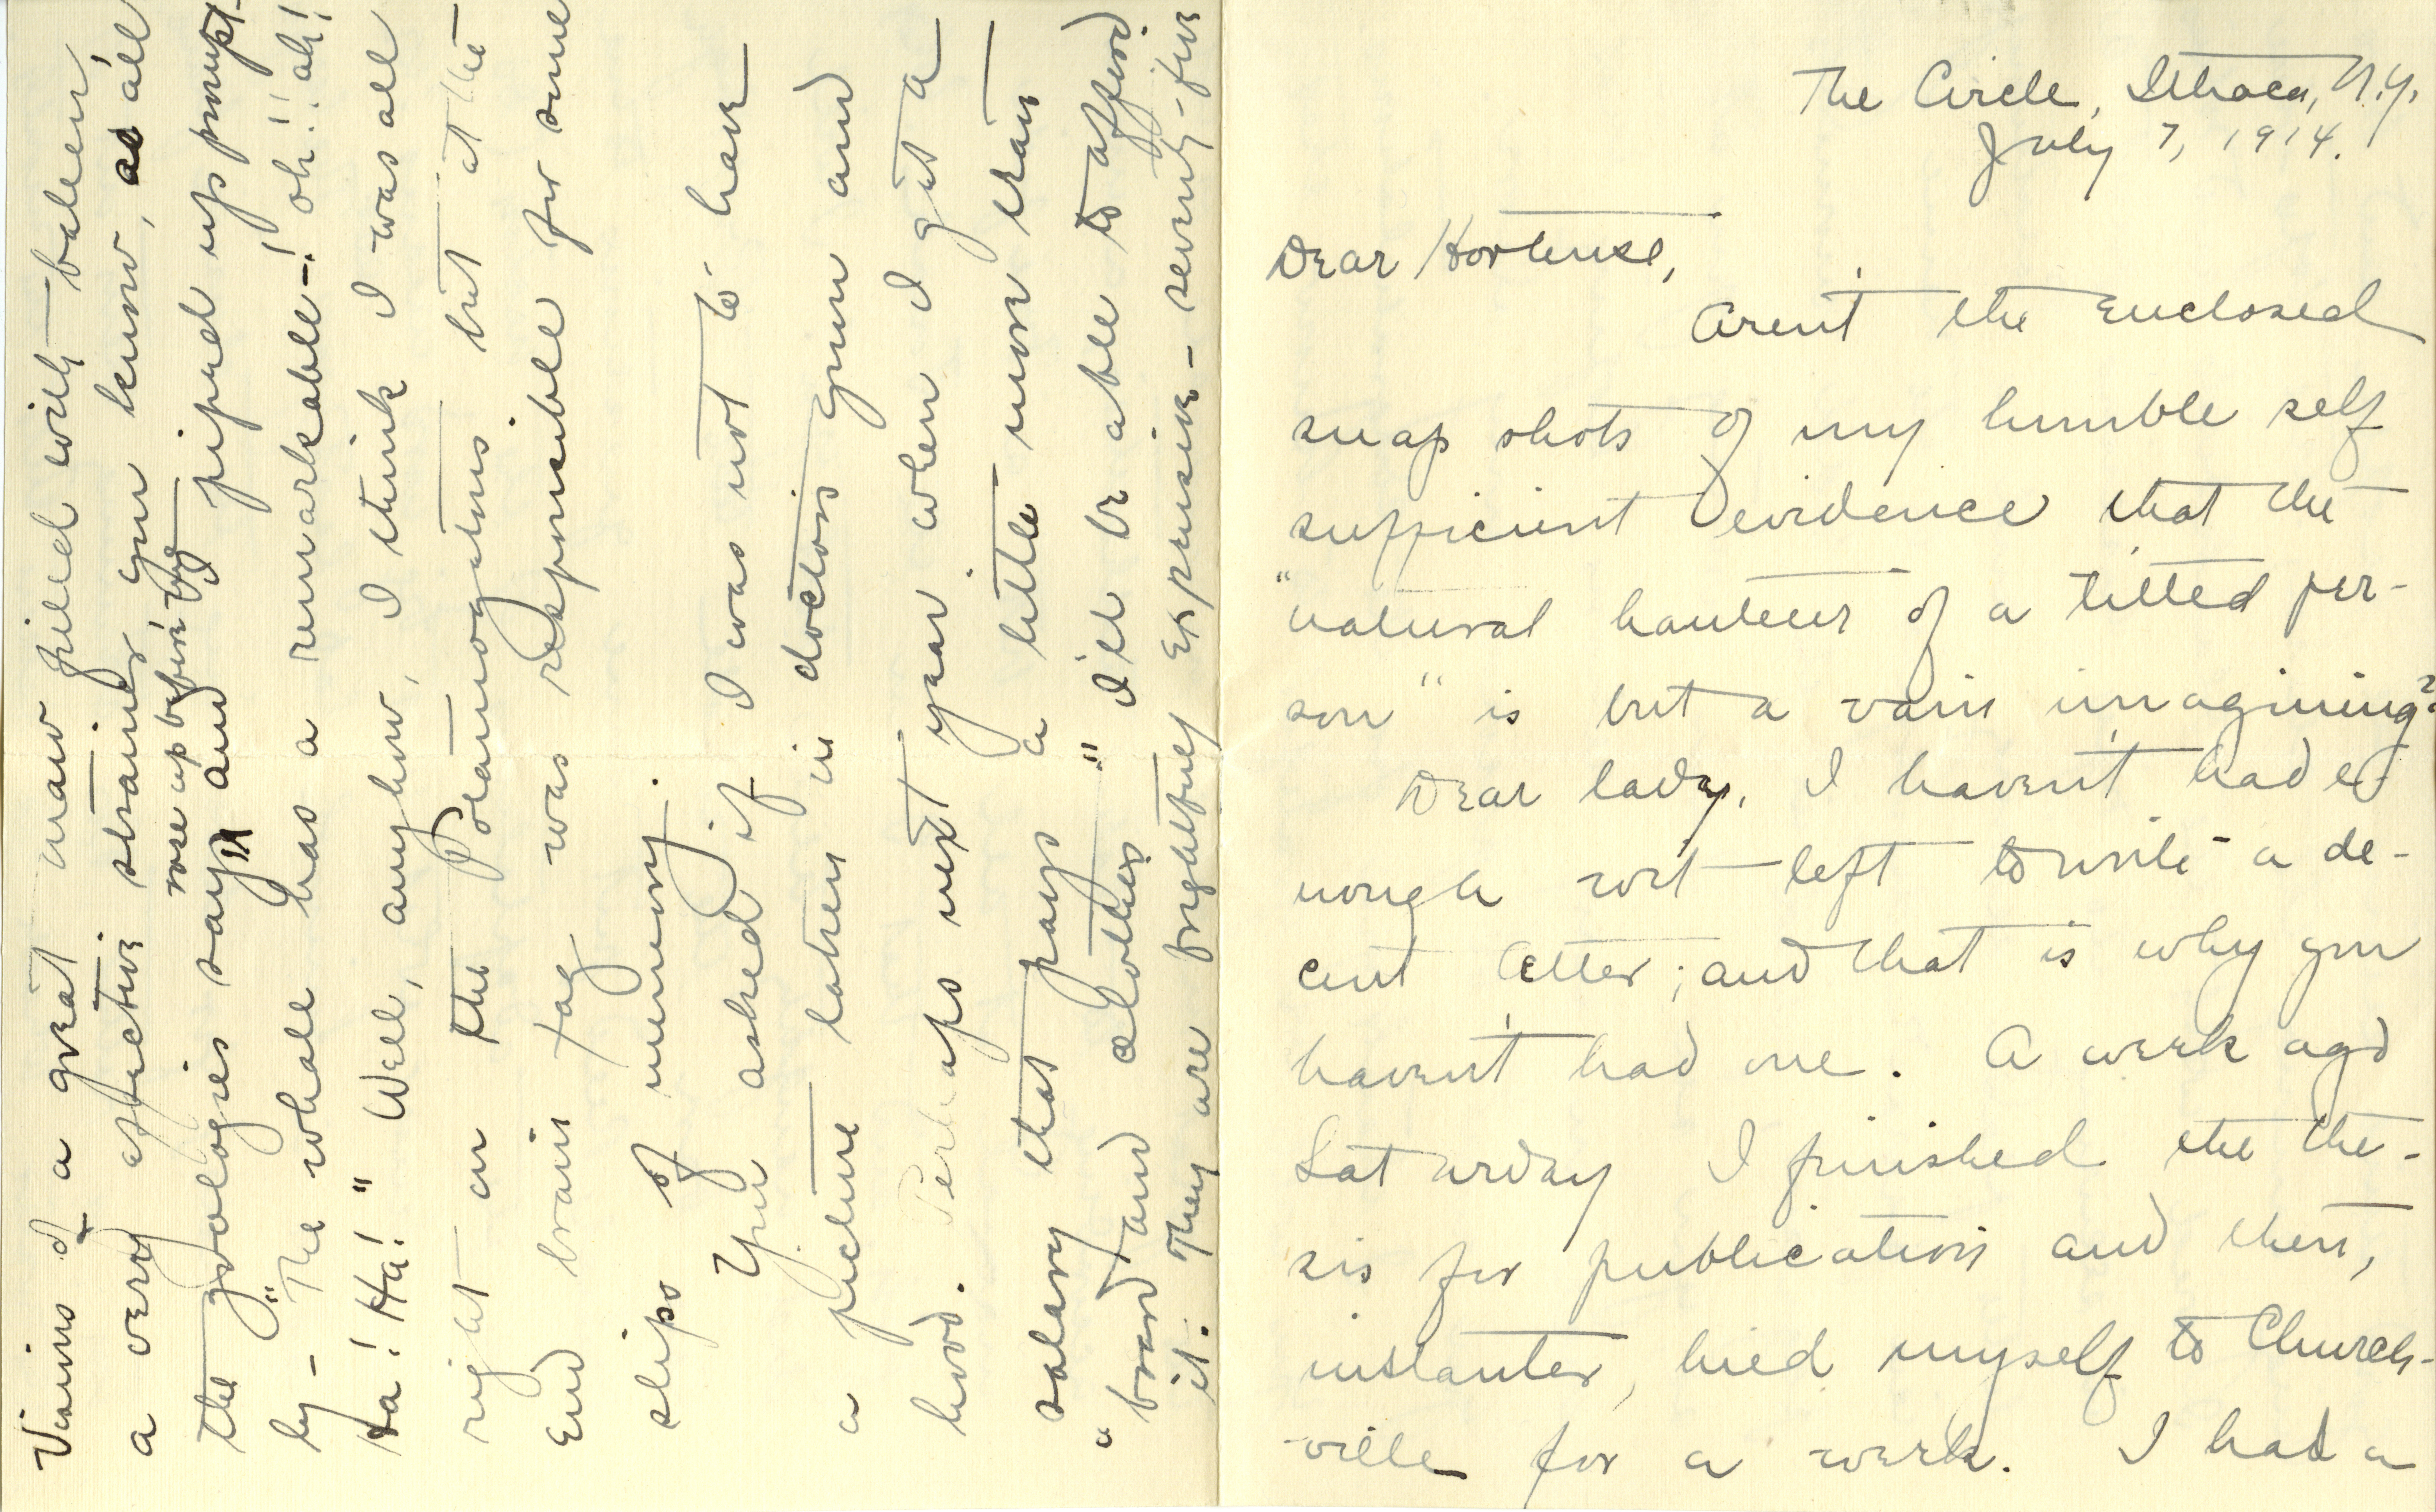 The Circle, Ithaca, N.Y.
July 7, 1914.
Dear Hortense,
Aren't the enclosed
snap shots of my humble self
sufficient evidence that the
"natural hauteur of a titled per-
son" is but a vain imagining?
Dear lady, I haven't had e-
nough wit left to write a de-
cent letter; and that is why you
haven't had one. A week ago
Saturday I finished the the-
sis for publication and then,
instanter, hied myself to Church-
ville for a week. I had a
Visions of a great maw filled with baleen,
a very effective strainer you know, as all
the zoologies say, rose up before me
and I piped up prompt-
ly - "The whale has a remarkable-! oh!! ah!
Ha! Ha!" Well, anyhow, I think I was all
right on the Potamogetons but at the
end brain fag was responsible for some
slips of memory.
You asked if I was not to have
a picture taken in doctor's gown and
hood. Perhaps next year when I get a
salary that pays a little more than
"board and clothes" I'll be able to afford
it. They are frightfully expensive - seventy-five